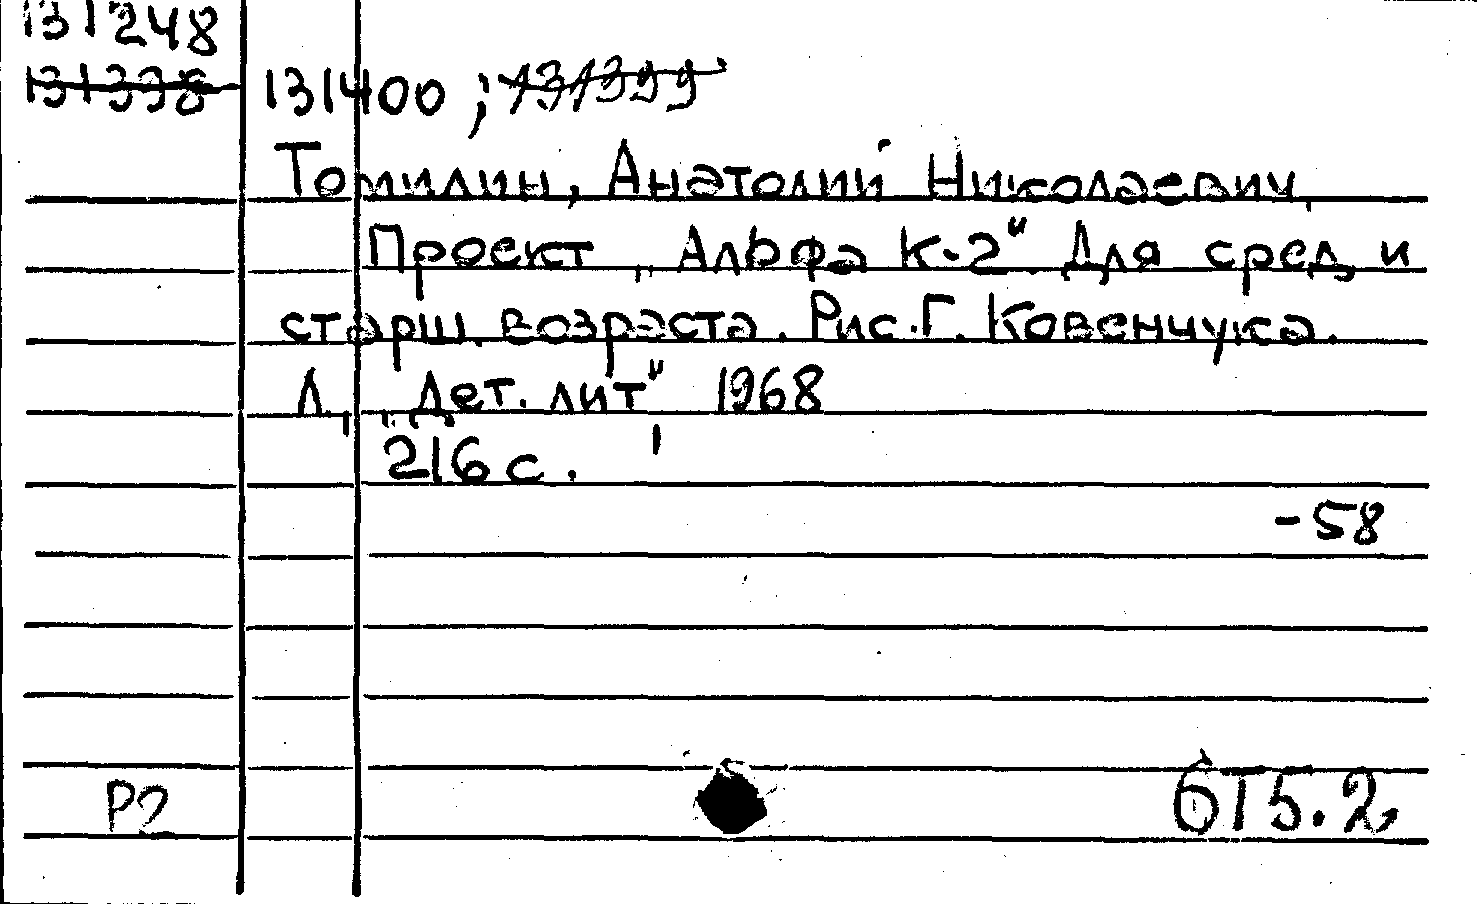 131248
131398 131400 ; 131399
Томилин, Анатолий Николаевич.
Проект „Альфа К-2". Для сред, и
старш. возраста. Рис. Г. Ковенчука.
Л., „Дет. лит", 1968
216 с.
-58
Р2
6Т5.2,